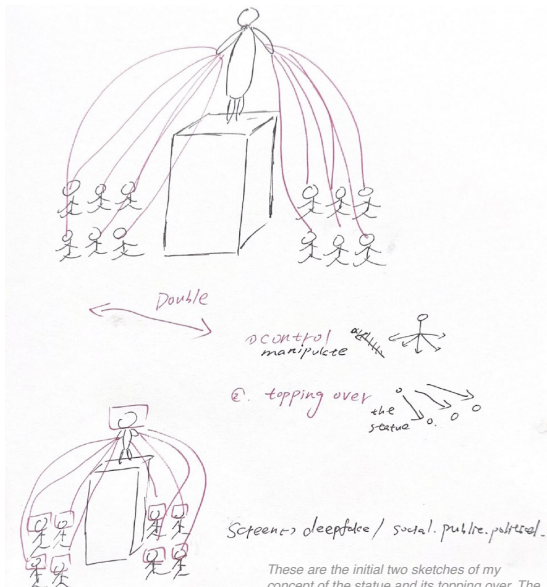 Double
① control
manipulate
②. topping over
the
statue
Screen → deepfake / social. public. political.
These are the initial two sketches of my
concept of the statue and its topping over. The